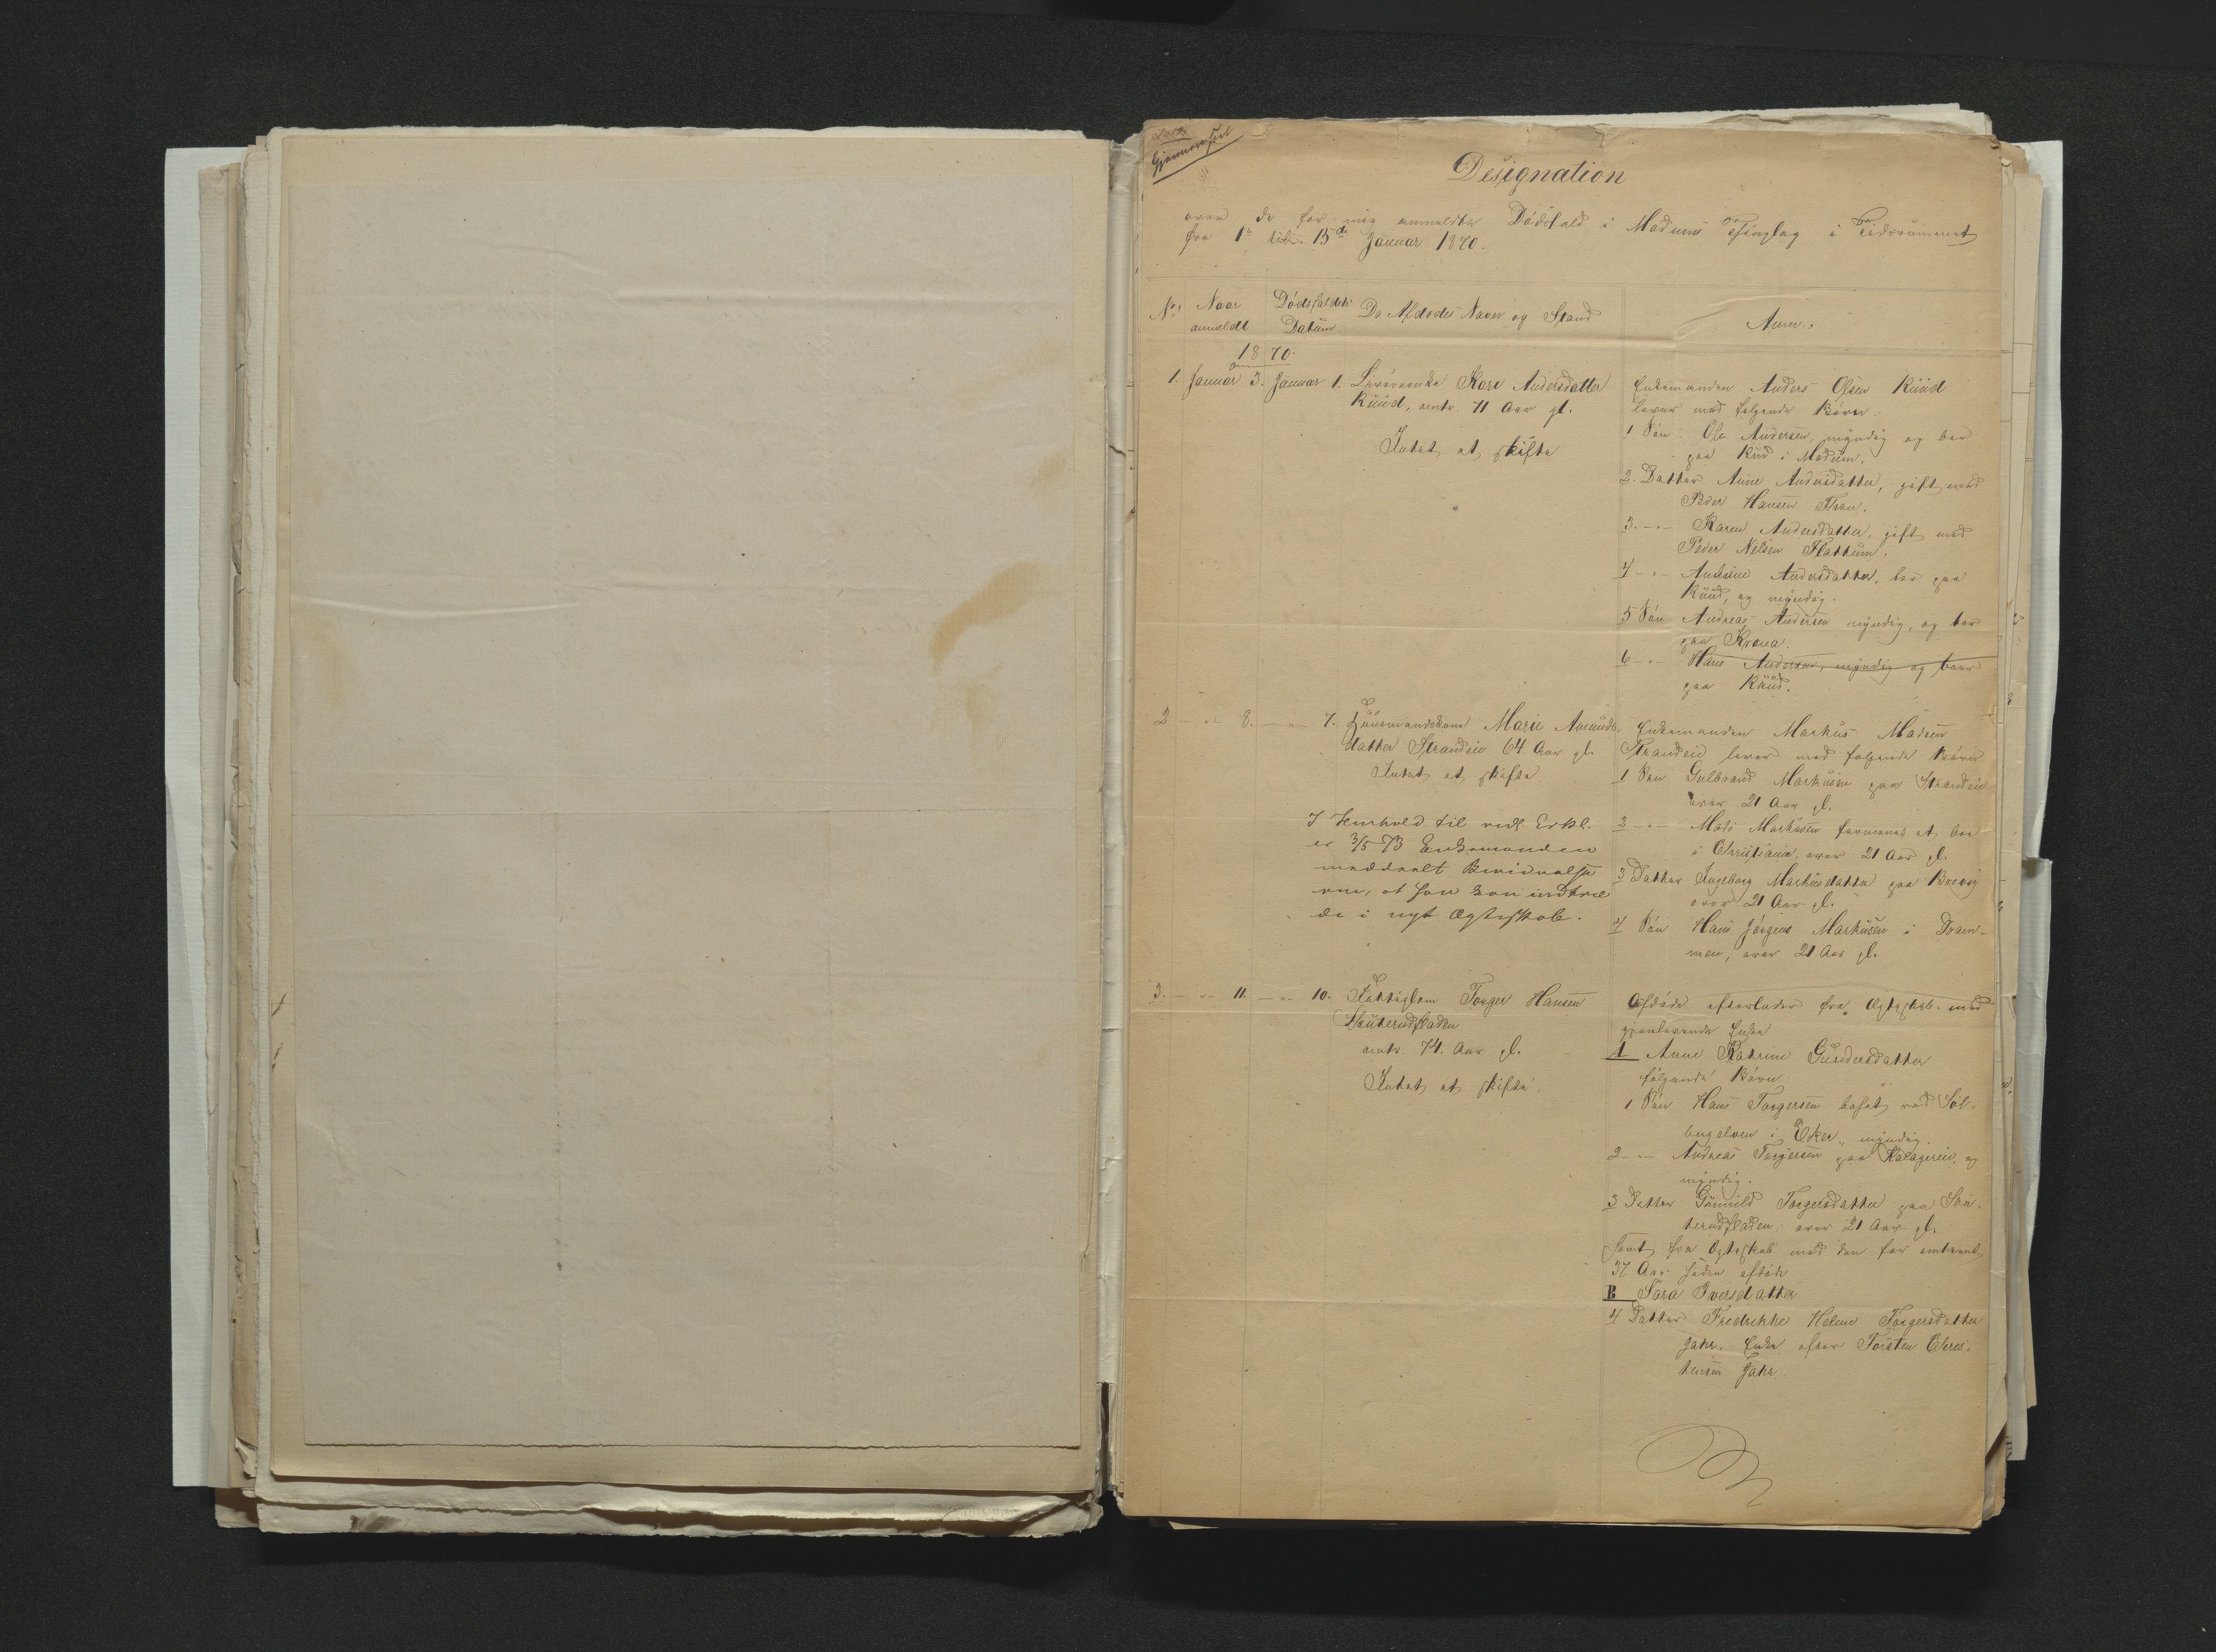 Gjennemseet
Designation
over de for mig anmeldte Dødsfald i Modums Thinglag i Tidsrummet
fra 1ste til 15de Januar 1870.
No. Naar anmeldt Dødsfaldets Datum De Afdødes Navn og Stand Anm.
1870.
1. Januar 3. Januar 1. Kari Andersdatter
Ruud, omtr. 71 Aar gl.
Intet at skifte
Enkemanden Anders Olsen Ruud
lever med følgende Børn:
1 Søn Ole Andersen, myndig og bor
paa Rud i Modum.
2. Datter Anne Andersdatter, gift med
Peder Hansen
3. -"- Karen Andersdatter, gift med
Peder Nilsen Flattum.
4 -"- Andersdatter, bor paa
Ruud, og myndig.
5 Søn Andreas Andersen myndig, og bor
paa Krona.
6 -"- Hans Andersen, myndig og boer
paa Ruud.
2 -"- 8. -"- 7. Huusmandskone Marie Amunds-
datter Strandeie 64 Aar gl.
Intet at skifte.
I Henhold til vedl. Erkl.
er 3/5 73 Enkemanden
meddeelt Bevidnelse
om, at han kan indtræ
de i nyt Ægteskab.
Enkemanden Markus Madsen
Strandeie lever med følgende Børn
1 Søn Gulbrand Markusen paa Strandeie
over 21 Aar gl.
2 -"- Mads Markusen formenes at boe
i Christiania, over 21 Aar gl.
3 Datter Ingeborg Markusdatter paa
over 21 Aar gl.
4 Søn Hans Jørgen Markusen i Dram-
men, over 21 Aar gl.
3. -"- 11. -"- 10. Fattiglem Torger Hansen
Skuterudfladen
omtr. 74 Aar gl.
Intet at skifte.
Afdøde efterlader fra Ægteskab med
gjenlevende Enke
A Anne Katrine Gundersdatter
følgende Børn:
1 Søn Hans Torgersen bosat ved Sol-
bergelven i Eker, myndig.
2 -"- Andreas Torgersen paa og
myndig.
3 Datter Gunnild Torgersdatter paa Sku-
terudfladen, over 21 Aar gl.
samt fra Ægteskab med den for omtrent
37 Aar siden afdøde
B Sara Iversdatter
4 Datter Fredrikke Helene Torgersdatter
Enke efter Torsten Chris-
tensen